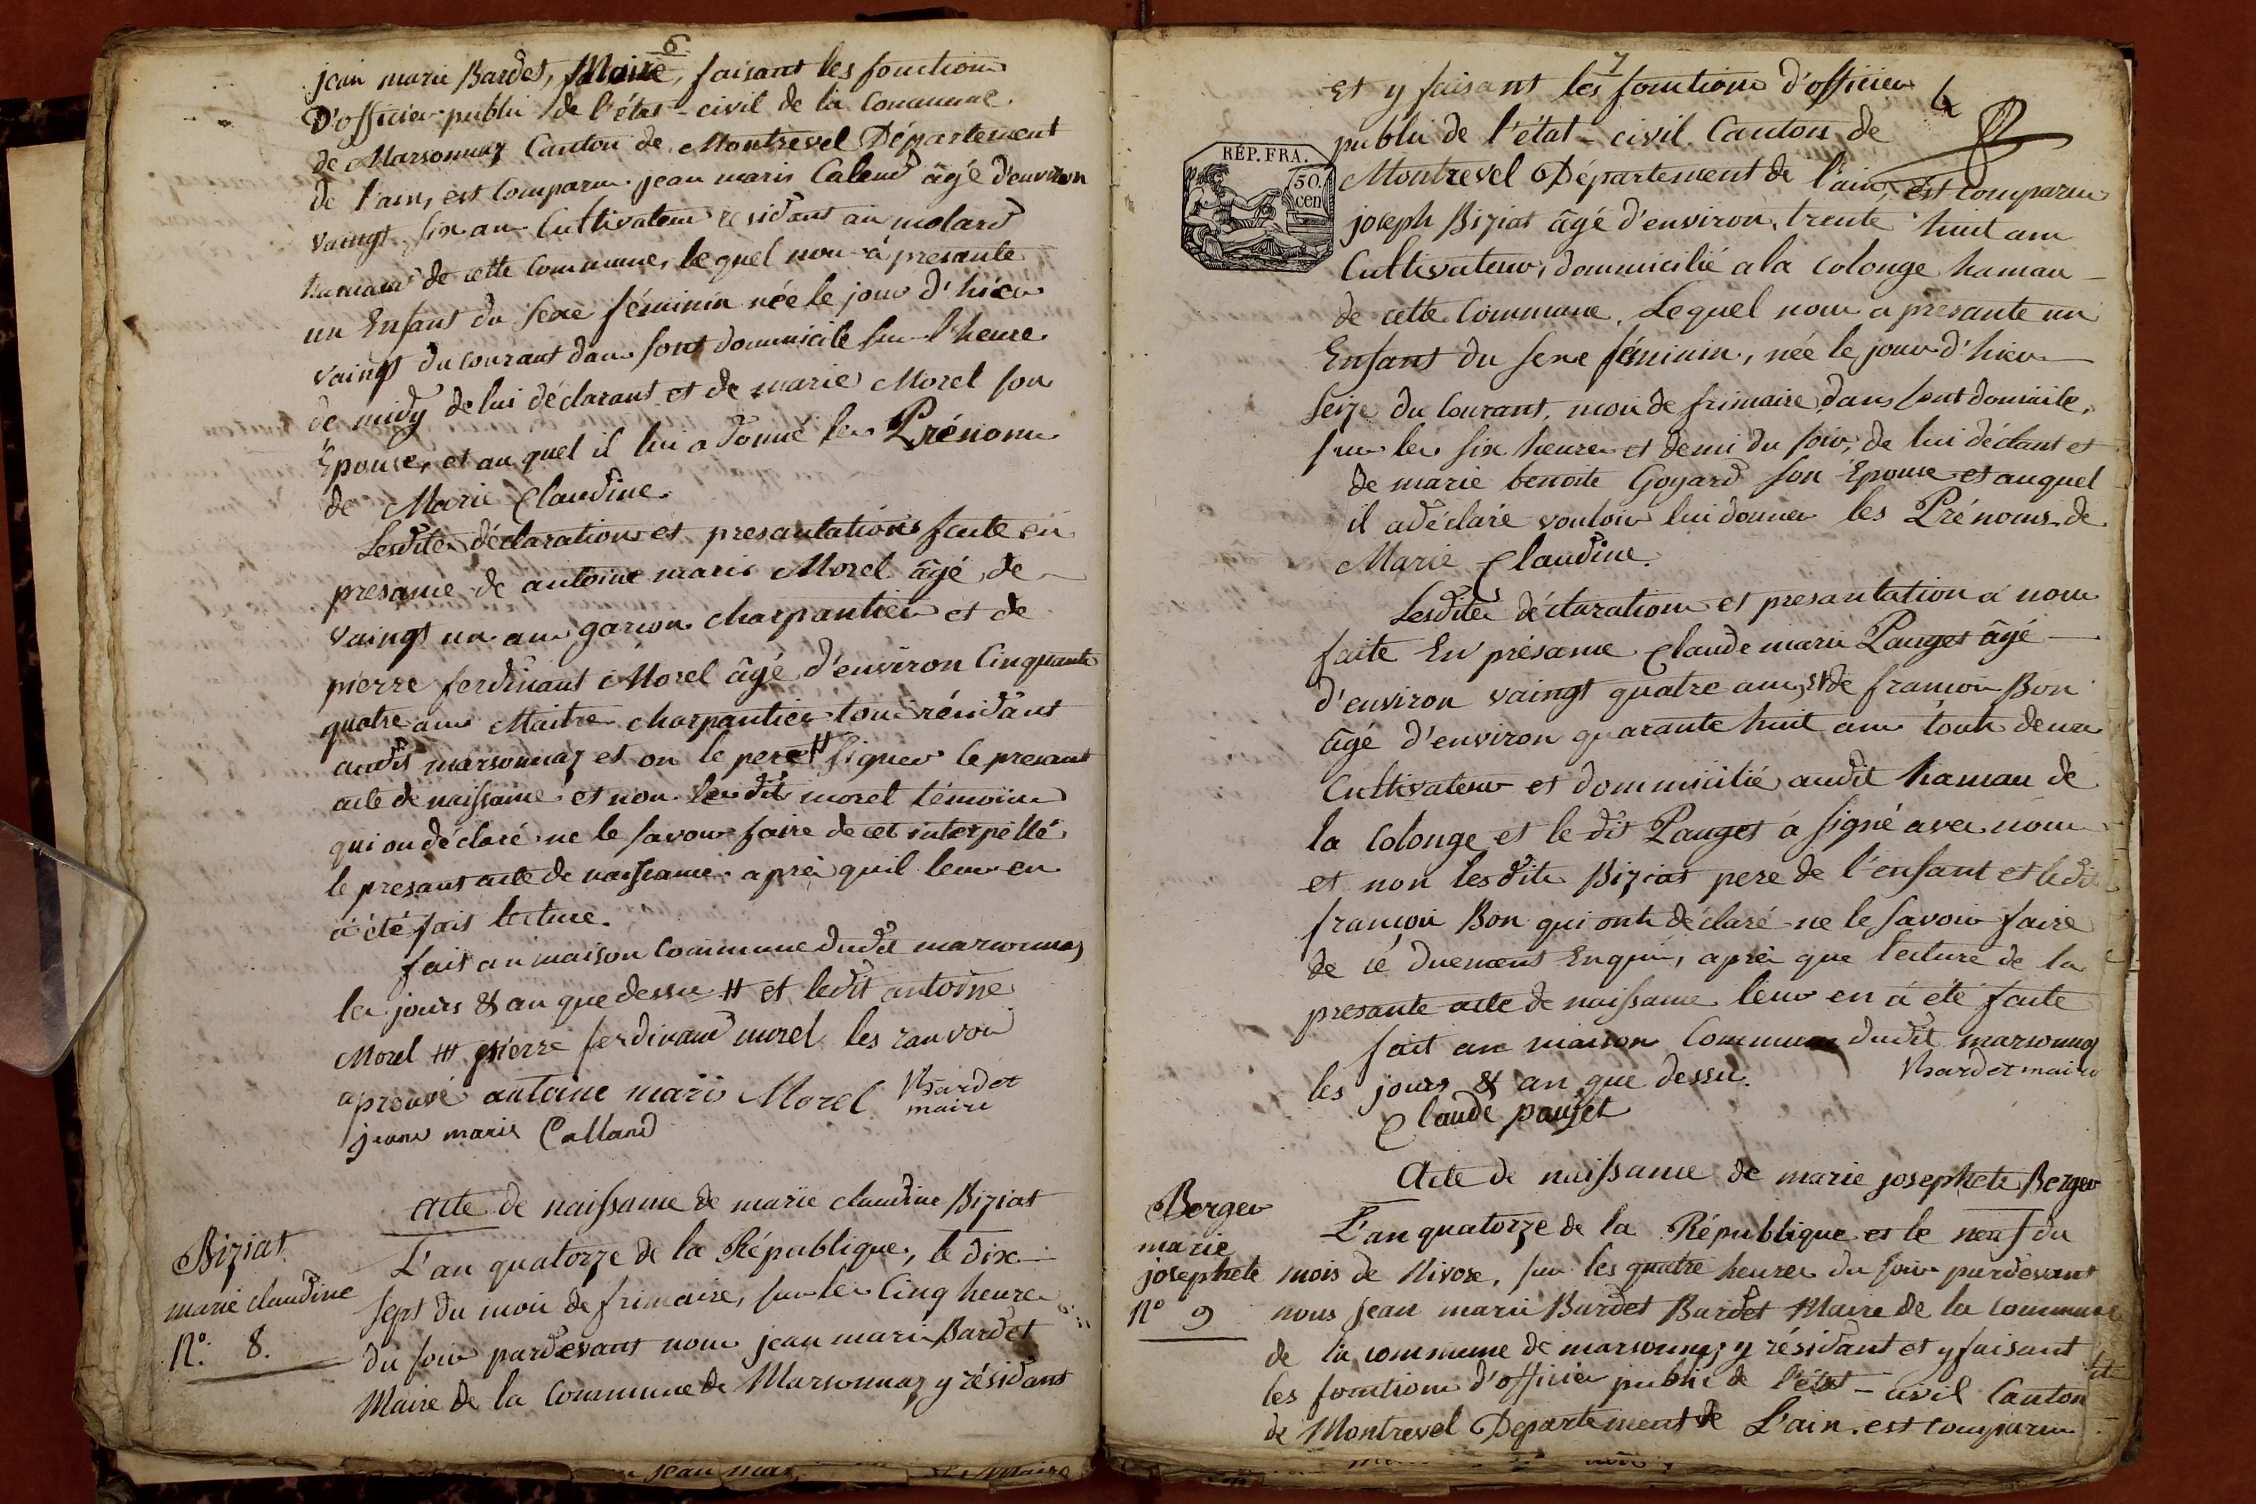 6
jean marie Bardet, Maire, faisant les fonctions
D'officier public de l'état-civil de la Commune
de Marsonnaz Canton de Montrevel Département
de l'ain, est Comparu jean marie Caland âgé d'environ
vaingt six ans Cultivateur residant au molard
hamaux de cette Commune, le quel nous à presanté
un Enfant du sexe féminin née le jour d'hièr
vaingt du courant dans sont dommicile sur l'heure
de midy de lui déclarant et de marie Morel son
Epouse, et au quel il lui a donné les Prénoms
de Marie Claudine.
Lesdites déclarations et presantations faite en
presance de antoine marie Morel âgé de
vaingt un ans garson charpantier et de
pierre ferdinant Morel âgé d'environ Cinquante
quatre ans Maitre charpantier tous résidant
audit marsonnaz et on le pere # signer le presant
acte de naissance et non lesdit morel témoins
qui on déclaré ne le savoir faire de cet interpellé
le presant acte de naissance après quil leur en
à été fait lecture.
fait an maison Commune dudit marsonnaz
les jours & an que dessus # et ledit antoine
Morel ## pierre ferdinand morel les ranvoi
aprouvé antoine marie Morel JMBardet
maire
jean marie Calland
acte de naissance de marie claudine Biziat
Biziat
marie claudine
N.º 8.
L'an quatorze de la République, le dix
sept du mois de frimaire, sur les Cinq heures
du soir pardevant nous jean marie Bardet
Maire de la Commune de Marsonnaz y résidant
7
Et y faisant les fonctions d'officier
public de l'état-civil Canton de
Montrevel Département de l'ain, est comparu
RÉP. FRA.
50.
cen
joseph Biziat âgé d'environ trente huit ans
Cultivateur, dommicilié a la Colonge hamau
de cette Commune. Lequel nous a presanté un
Enfant du sexe féminin, née le jour d'hier
seize du Courant mois de frimaire dans sont domicile,
sur les six heures et demi du soir, de lui déclant et
de marie benoite Goyard son Epouse et auquel
il a déclaré vouloir lui donner les Prénoms de
Marie Claudine.
Lesdites déclarations et presantation à nous
faite En présence Claude marie Pauget âgé
d'environ vaingt quatre ans, et de francois Bon
âgé d'environ quarante huit ans touts deux
Cultivateur et dommicilié audit hamau de
la Colonge et le dit Pauget à signé avec nous
et non lesdits Biziat pere de l'enfant et ledit
françois Bon qui onts déclaré ne le savoir faire
de ce duement Enquis, après que lecture de la
presante acte de naissance leur en à été faite
fait an maison Commune dudit marsonnaz
les jours & an que dessus. JMBardet maire
Claude paujet
Acte de naissance de marie josephete Berger
Berger
marie
josephete
N.º 9
L'an quatorze de la République et le neuf du
mois de Nivose, sur les quatre heures du soir pardevant
nous jean marie Bardet Bardet Maire de la Commune
de la commune de marsonnaz y résidant et y faisant
les fonctions d'officier public de l'état-civil Canton
de Montrevel Departement de L'ain. est comparu